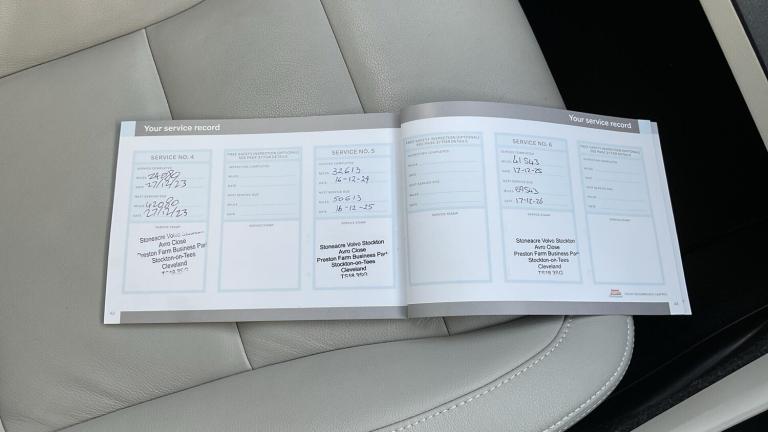 Your service record
SERVICE NO. 4
SERVICE COMPLETED
MILES 24080
DATE 27/12/23
NEXT SERVICE DUE
MILES 42080
DATE 27/12/23
SERVICE STAMP
Stoneacre Volvo Stockton
Avro Close
Preston Farm Business Par
Stockton-on-Tees
Cleveland
FREE SAFETY INSPECTION (OPTIONAL)
SEE PAGE 37 FOR DETAILS
INSPECTION COMPLETED
MILES
DATE
NEXT SERVICE DUE
MILES
DATE
SERVICE STAMP
SERVICE NO. 5
SERVICE COMPLETED
MILES 32613
DATE 16-12-24
NEXT SERVICE DUE
MILES 50613
DATE 16-12-25
SERVICE STAMP
Stoneacre Volvo Stockton
Avro Close
Preston Farm Business Par
Stockton-on-Tees
Cleveland
Your service record
FREE SAFETY INSPECTION (OPTIONAL)
SEE PAGE 37 FOR DETAILS
INSPECTION COMPLETED
MILES
DATE
NEXT SERVICE DUE
MILES
DATE
SERVICE STAMP
SERVICE NO. 6
SERVICE COMPLETED
MILES 41543
DATE 17-12-25
NEXT SERVICE DUE
MILES 59543
DATE 17-12-26
SERVICE STAMP
Stoneacre Volvo Stockton
Avro Close
Preston Farm Business Par
Stockton-on-Tees
Cleveland
FREE SAFETY INSPECTION (OPTIONAL)
SEE PAGE 37 FOR DETAILS
INSPECTION COMPLETED
MILES
DATE
NEXT SERVICE DUE
MILES
DATE
SERVICE STAMP